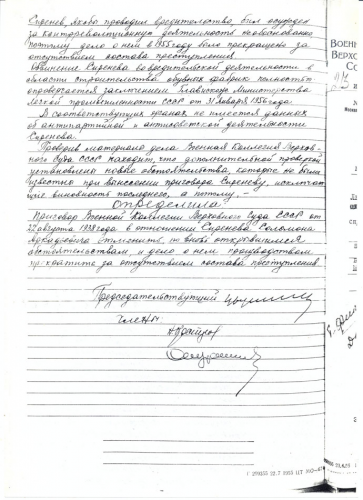 Сиренев, якобы проводил вредительство, был осужден
за контрреволюционную деятельность необоснованно,
поэтому дело о нем в 1955 году было прекращено за
отсутствием состава преступления.
Обвинение Сиренева во вредительской деятельности в
области строительства обувных фабрик полностью
опровергается заключением Главного Министерства
легкой промышленности СССР от 31 января 1956 года.
В соответствующих органах не имеется данных
об антипартийной и антисоветской деятельности
Сиренева.
Проверив материалы дела Военная Коллегия Верхов-
ного Суда СССР находит, что дополнительной проверкой
установлены новые обстоятельства, которые не были
известны при вынесении приговора Сиреневу, исключаю-
щие виновность последнего, а потому, -
определила:
Приговор Военной Коллегии Верховного Суда СССР от
22 августа 1938 года в отношении Сиренева Соломона
Аркадьевича отменить по вновь открывшимся
обстоятельствам и дело о нем производством
прекратить за отсутствием состава преступления.
Председательствующий
Члены
ВОЕН
ВЕРХО
СО